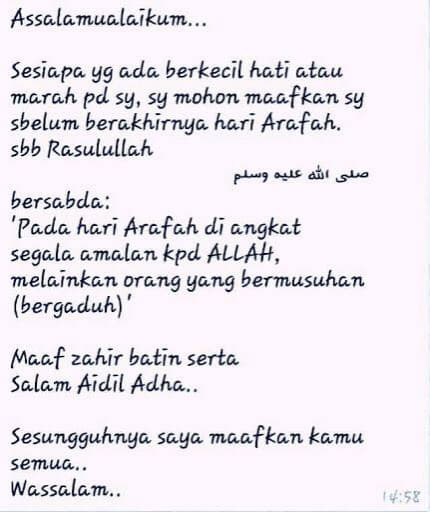 Assalamualaikum...
Sesiapa yg ada berkecil hati atau
marah pd sy, sy mohon maafkan sy
sbelum berakhirnya hari Arafah.
sbb Rasulullah
صلى الله عليه وسلم
bersabda:
'Pada hari Arafah di angkat
segala amalan kpd ALLAH,
melainkan orang yang bermusuhan
(bergaduh)'
Maaf zahir batin serta
Salam Aidil Adha..
Sesungguhnya saya maafkan kamu
semua..
Wassalam..
14:58